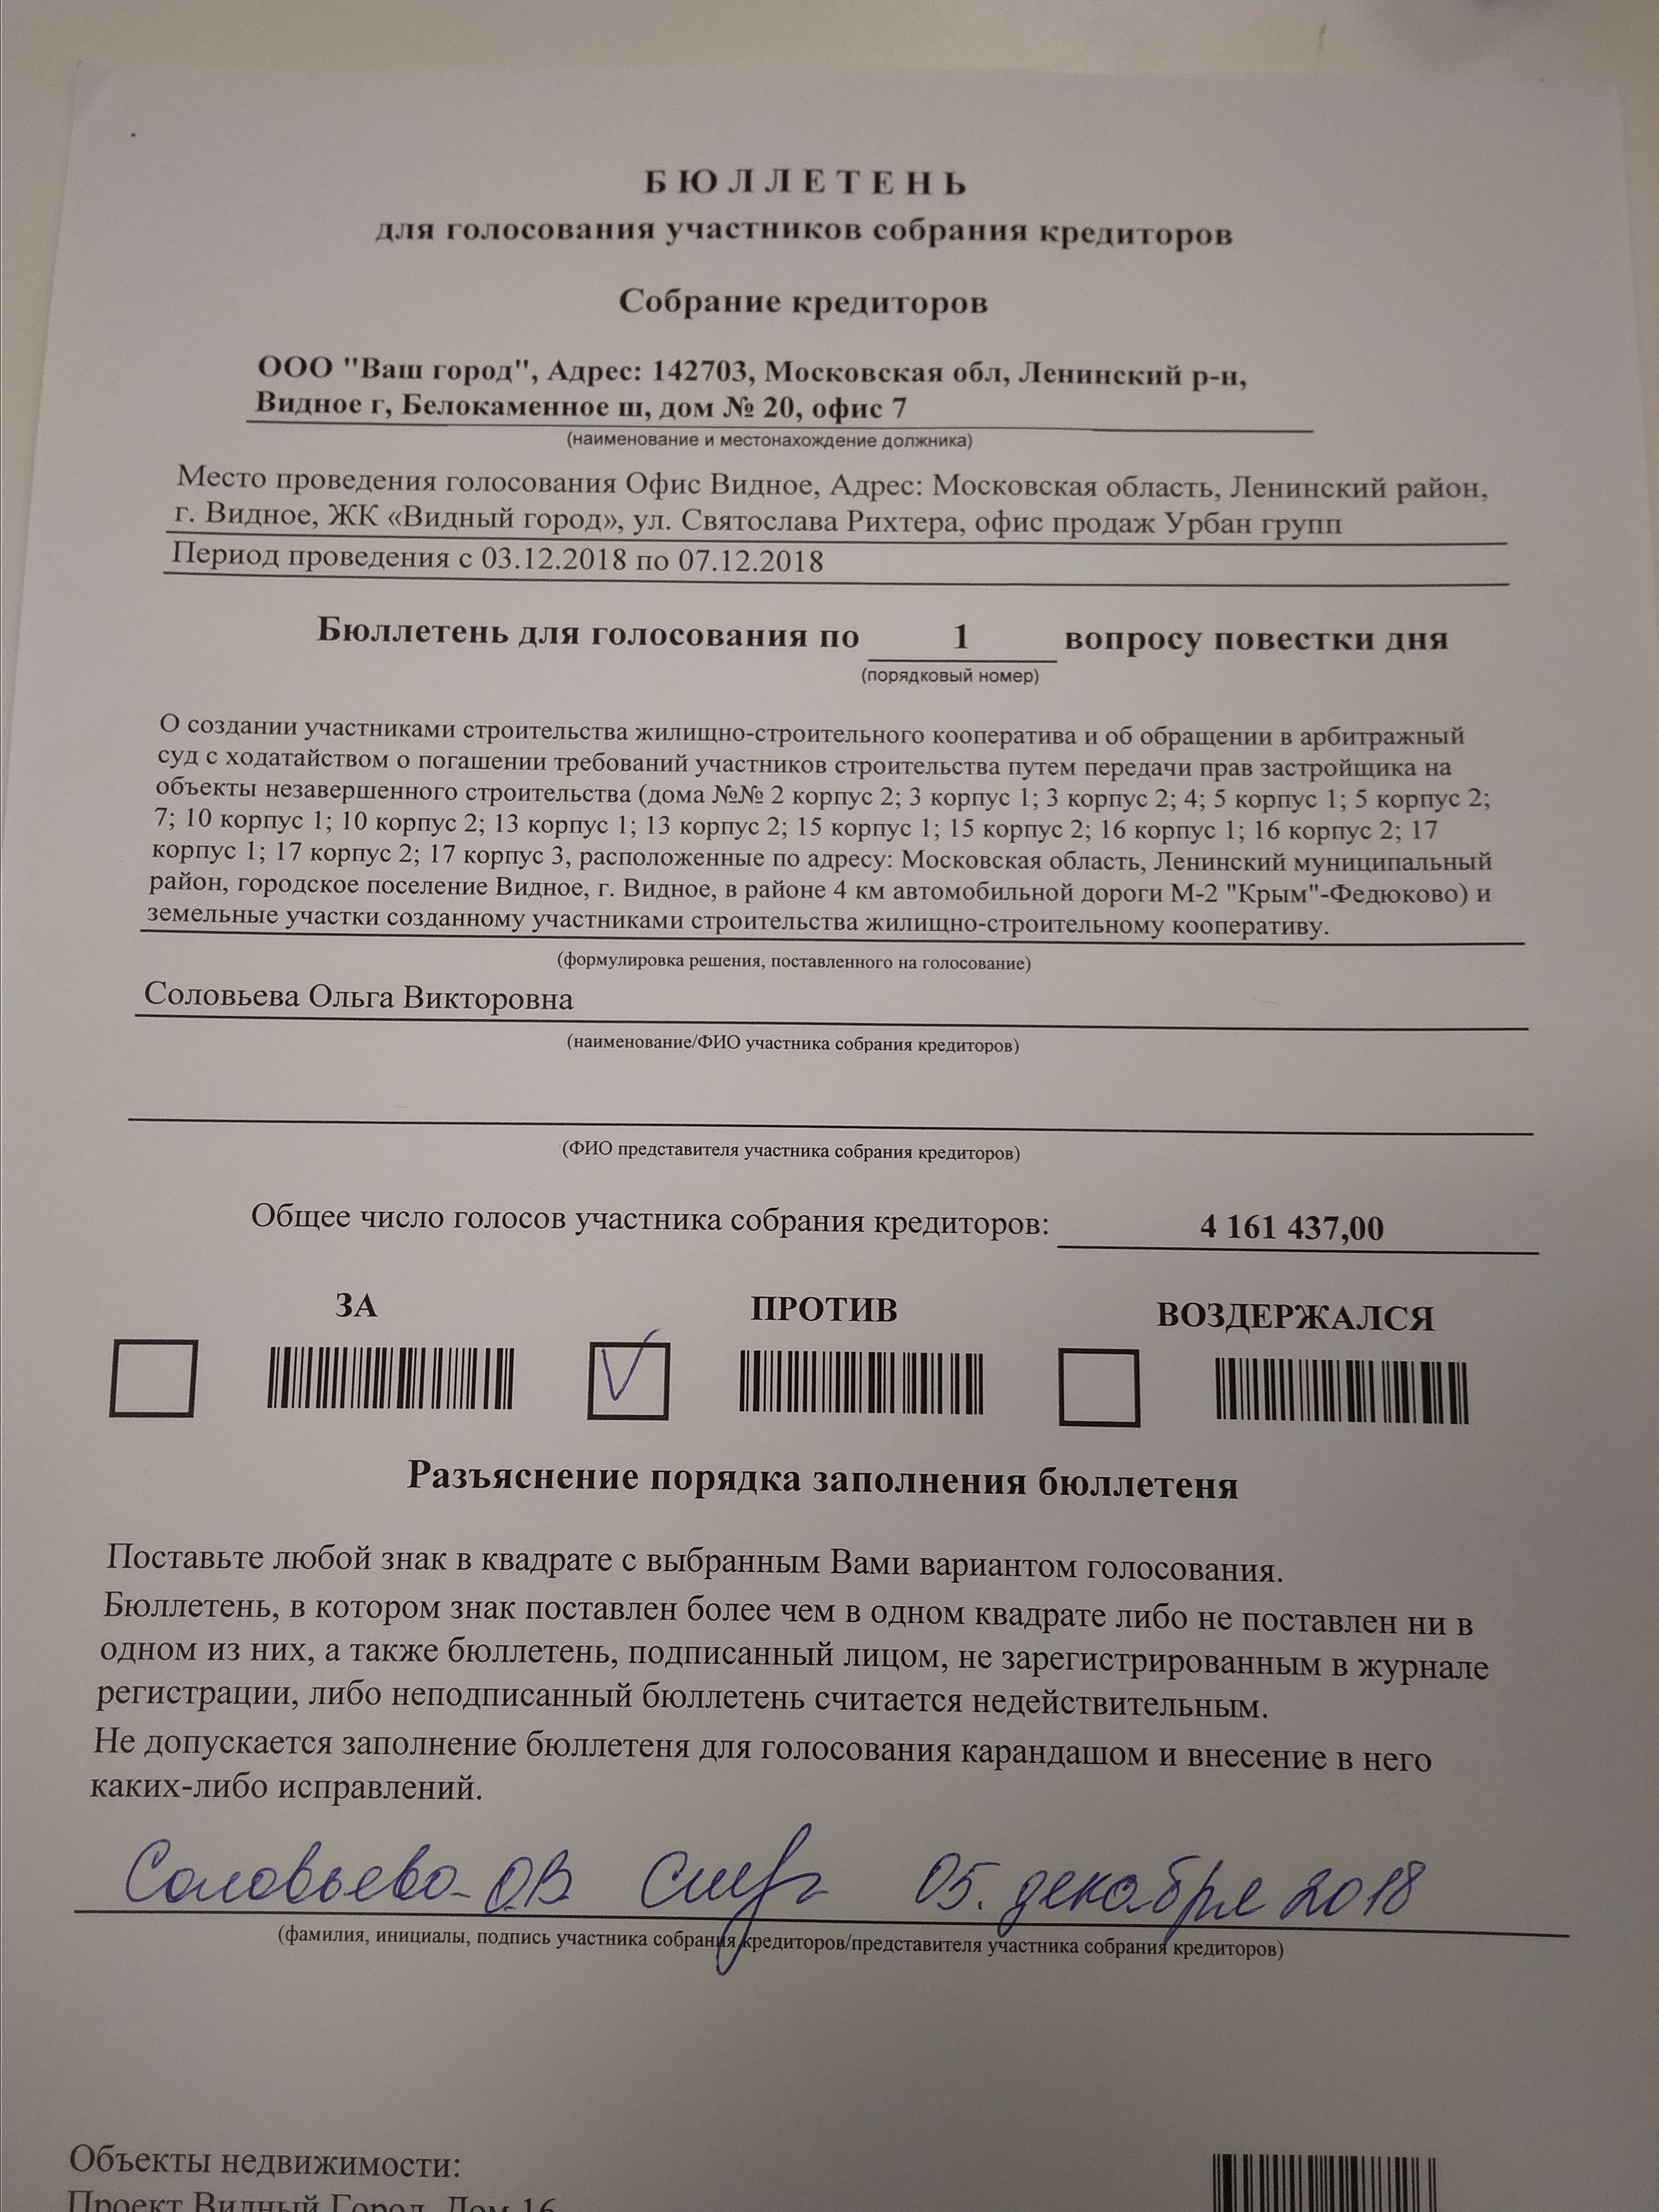 БЮЛЛЕТЕНЬ
для голосования участников собрания кредиторов
Собрание кредиторов
ООО "Ваш город", Адрес: 142703, Московская обл, Ленинский р-н,
Видное г, Белокаменное ш, дом № 20, офис 7
(наименование и местонахождение должника)
Место проведения голосования Офис Видное, Адрес: Московская область, Ленинский район,
г. Видное, ЖК «Видный город», ул. Святослава Рихтера, офис продаж Урбан групп
Период проведения с 03.12.2018 по 07.12.2018
Бюллетень для голосования по 1 вопросу повестки дня
(порядковый номер)
О создании участниками строительства жилищно-строительного кооператива и об обращении в арбитражный
суд с ходатайством о погашении требований участников строительства путем передачи прав застройщика на
объекты незавершенного строительства (дома №№ 2 корпус 2; 3 корпус 1; 3 корпус 2; 4; 5 корпус 1; 5 корпус 2;
7; 10 корпус 1; 10 корпус 2; 13 корпус 1; 13 корпус 2; 15 корпус 1; 15 корпус 2; 16 корпус 1; 16 корпус 2; 17
корпус 1; 17 корпус 2; 17 корпус 3, расположенные по адресу: Московская область, Ленинский муниципальный
район, городское поселение Видное, г. Видное, в районе 4 км автомобильной дороги М-2 "Крым"-Федюково) и
земельные участки созданному участниками строительства жилищно-строительному кооперативу.
(формулировка решения, поставленного на голосование)
Соловьева Ольга Викторовна
(наименование/ФИО участника собрания кредиторов)
(ФИО представителя участника собрания кредиторов)
Общее число голосов участника собрания кредиторов: 4 161 437,00
ЗА ПРОТИВ ВОЗДЕРЖАЛСЯ
Разъяснение порядка заполнения бюллетеня
Поставьте любой знак в квадрате с выбранным Вами вариантом голосования.
Бюллетень, в котором знак поставлен более чем в одном квадрате либо не поставлен ни в
одном из них, а также бюллетень, подписанный лицом, не зарегистрированным в журнале
регистрации, либо неподписанный бюллетень считается недействительным.
Не допускается заполнение бюллетеня для голосования карандашом и внесение в него
каких-либо исправлений.
Соловьева О.В. 05. декабря 2018
(фамилия, инициалы, подпись участника собрания кредиторов/представителя участника собрания кредиторов)
Объекты недвижимости:
Проект Видный Город, Дом 16